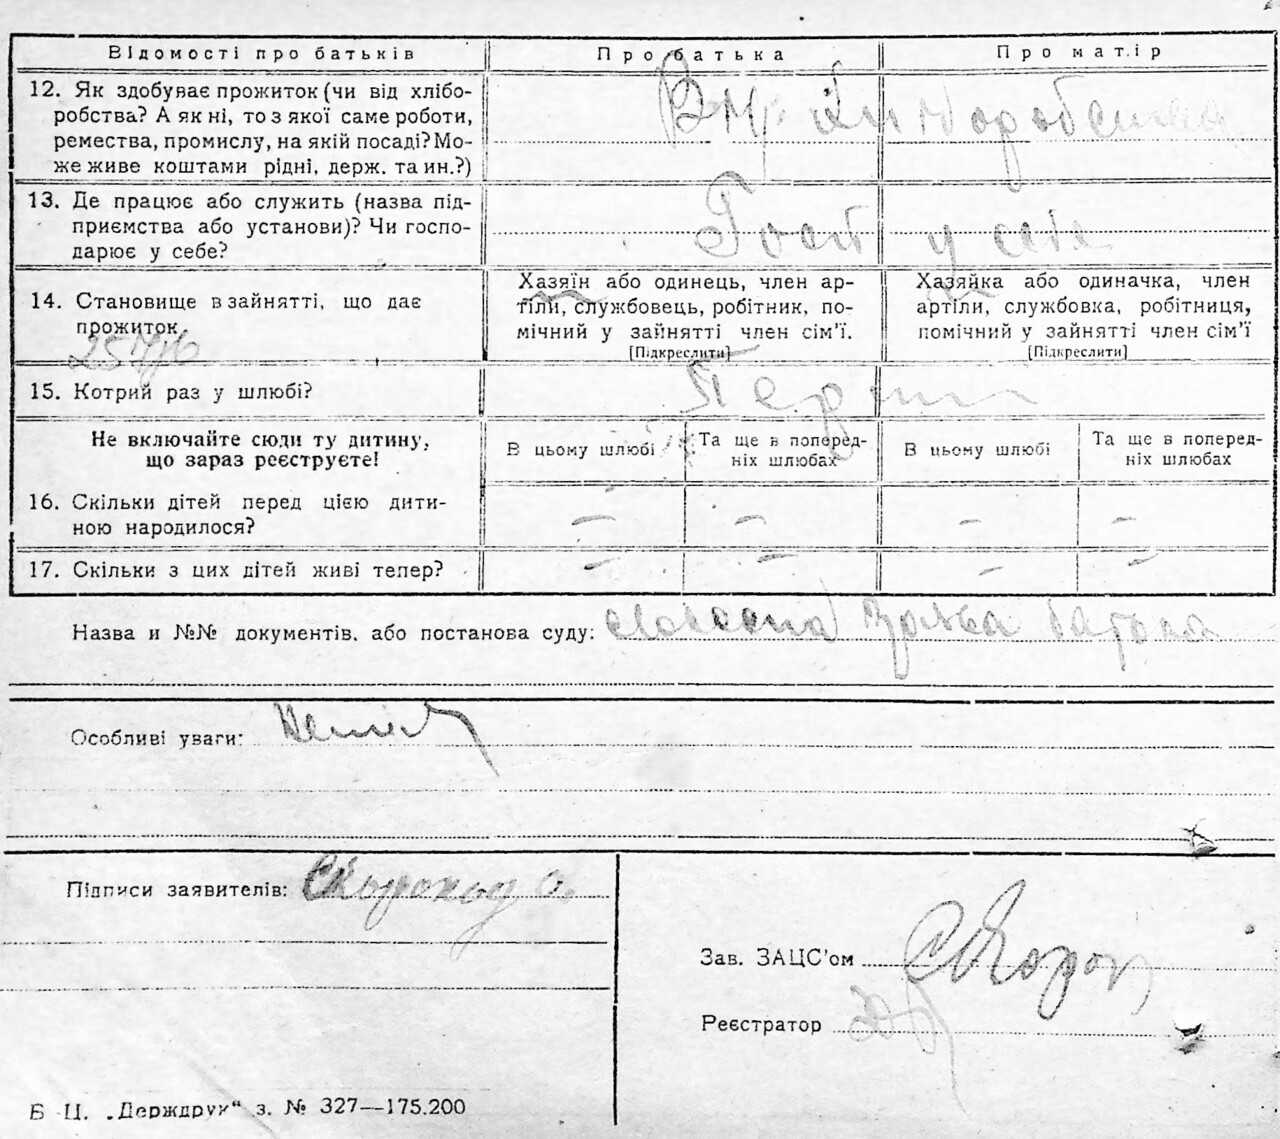 Відомості про батьків Про батька Про матір
12. Як здобуває прожиток (чи від хлібо-
робства? А як ні, то з якої саме роботи,
ремества, промислу, на якій посаді? Мо-
же живе коштами рідні, держ. та ин.?)
13. Де працює або служить (назва під-
приємства або установи)? Чи госпо-
дарює у себе?
у себе
14. Становище в зайнятті, що дає
прожиток.
Хазяїн або одинець, член ар-
тіли, службовець, робітник, по-
мічний у зайнятті член сім'ї.
[Підкреслити]
Хазяйка або одиначка, член
артіли, службовка, робітниця,
помічний у зайнятті член сім'ї
[Підкреслити]
15. Котрий раз у шлюбі?
Не включайте сюди ту дитину,
що зараз реєструєте!
В цьому шлюбі
Та ще в поперед-
ніх шлюбах
В цьому шлюбі
Та ще в поперед-
ніх шлюбах
16. Скільки дітей перед цією дити-
ною народилося?
– – – –
17. Скільки з цих дітей живі тепер?
– – – –
Назва и №№ документів, або постанова суду:
Особливі уваги:
Підписи заявителів:
Зав. ЗАЦС'ом
Реєстратор
Б Ц. „Держдрук“ з. № 327—175.200